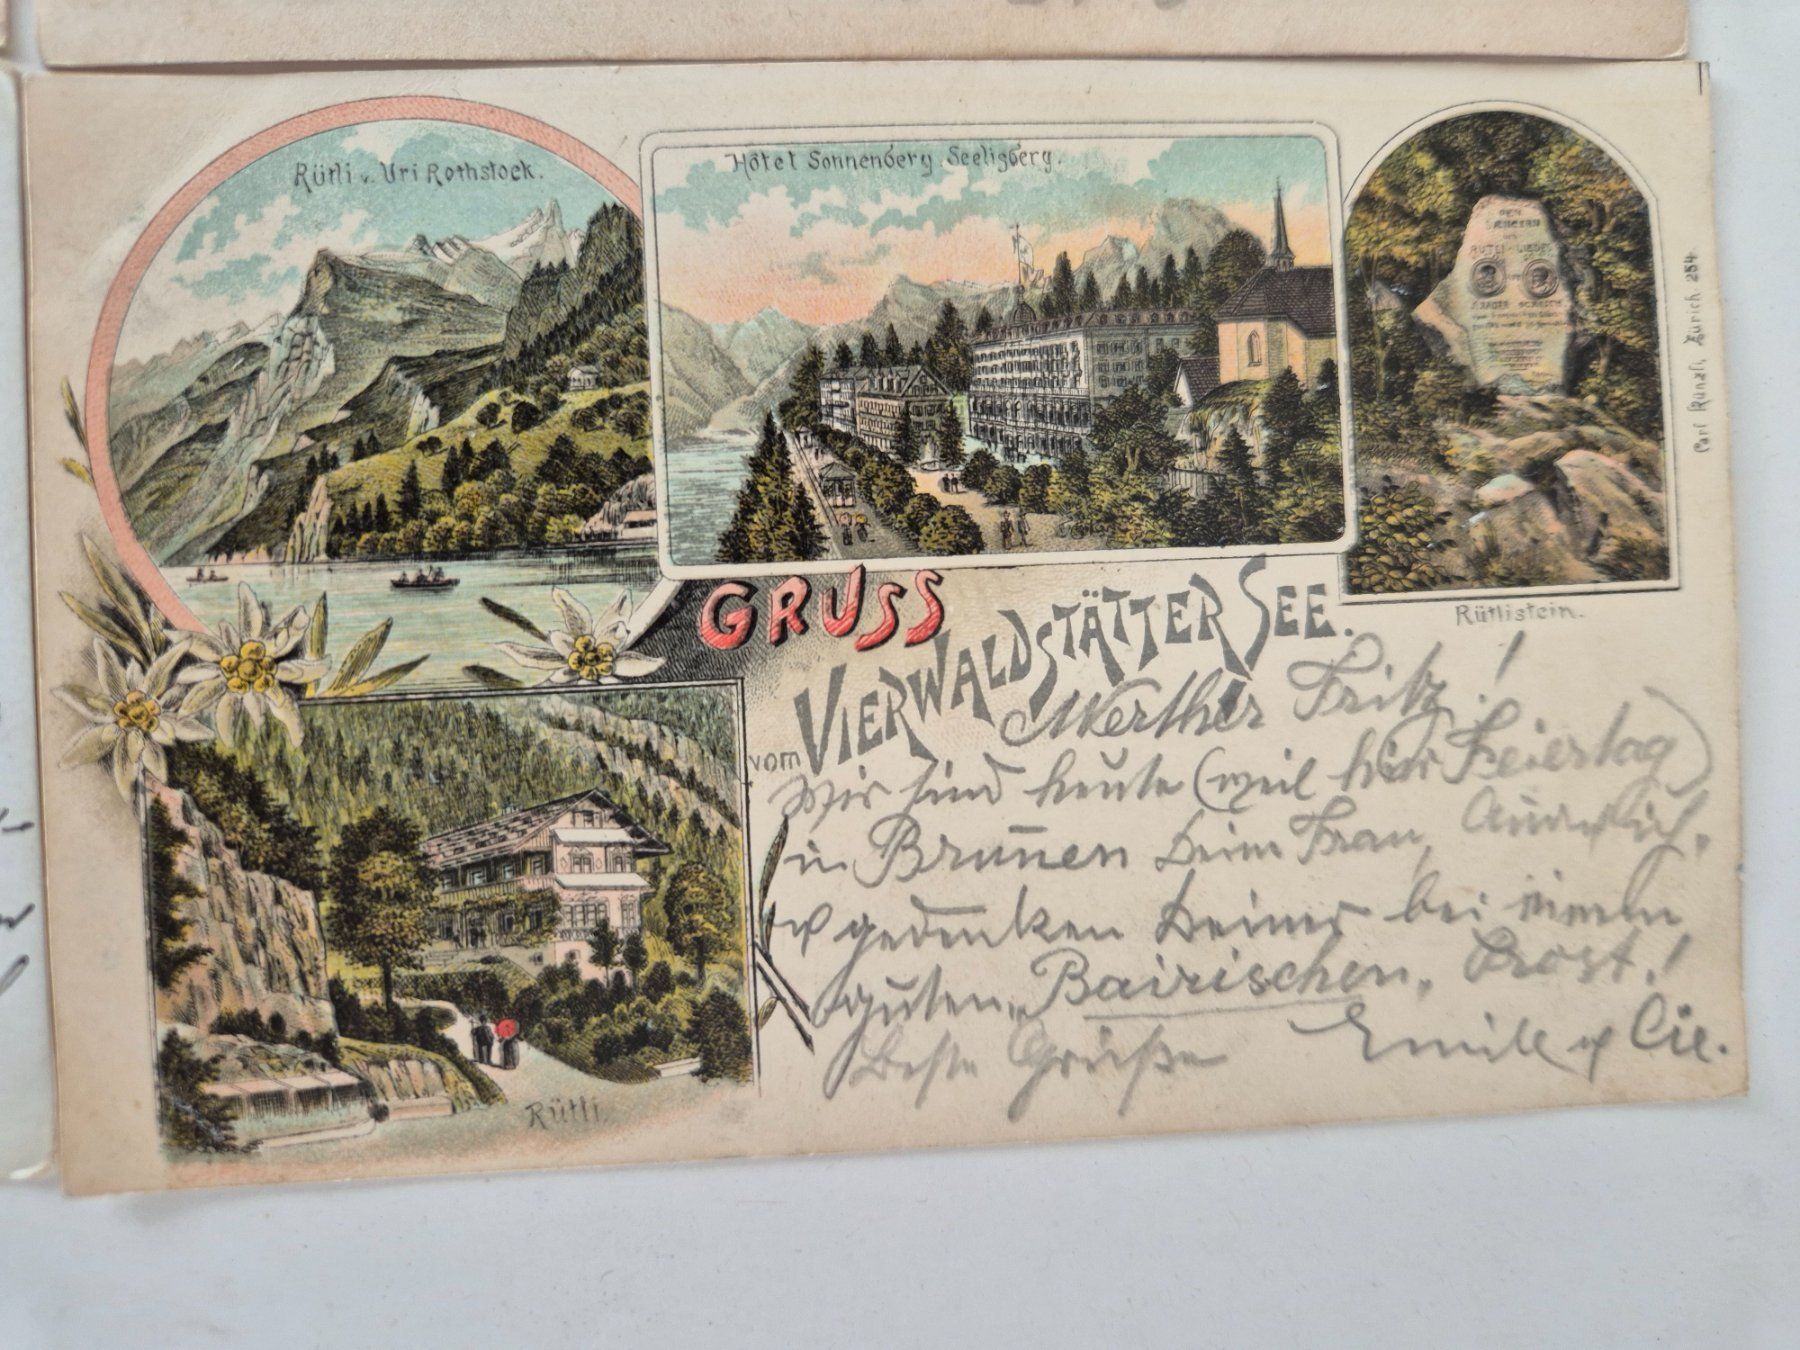 Rütli u. Uri Rothstock.
Hôtel Sonnenberg. Seelisberg.
DEN
SÆNGERN
DES
RÜTLI-LIEDES
Rütlistein.
Carl Künzli, Zürich 254.
GRUSS
vom VIERWALDSTÄTTER SEE.
Rütli.
Werther Fritz!
Wir sind heute (weil hier Feiertag)
in Brunnen beim Frau,
u gedenken Deiner bei einem
guten „Bairischen„ Prost!
Beste Grüße Emile u Cie.